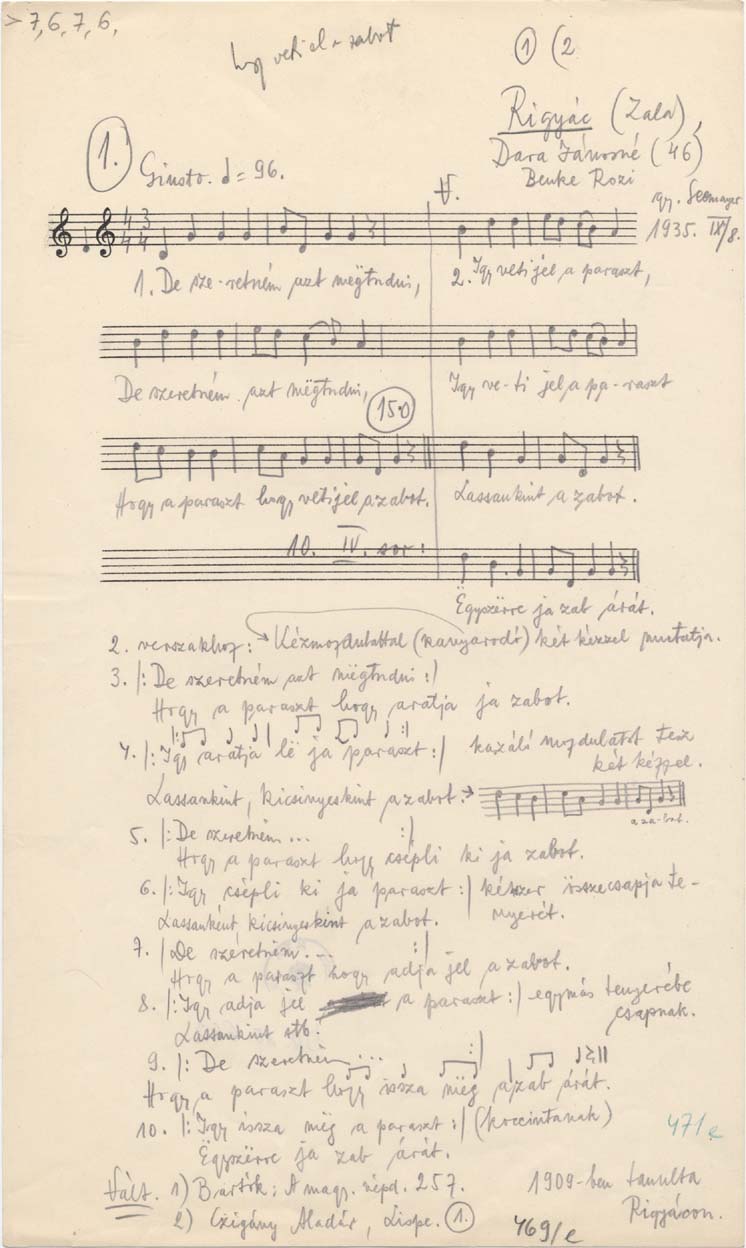 > 7, 6, 7, 6,
hogy veti el a zabot
① (2
Rigyác (Zala),
Dara Jánosné (46)
Benke Rozi
gy. Seemayer
1935. IX/8.
1. Giusto. ♩ = 96.
V.
1. De sze-retném azt mëgtudni,
2. Igy veti jel a paraszt,
De szeretném azt mëgtudni,
Igy ve-ti jel a pa-raszt
150
Hogy a paraszt hogy veti jel a zabot.
Lassankint a zabot.
10. IV. sor:
Ëgyszërre ja zab árát.
2. verszakhoz: Kézmozdulattal (kanyarodó) két kézzel mutatja.
3. |: De szeretném azt mëgtudni :|
Hogy a paraszt hogy aratja ja zabot.
4. |: Igy aratja lë ja paraszt :| kazáló mozdulatot tesz
két kézzel.
Lassankint, kicsinyeskint a zabot.
a za-bot.
5. |: De szeretném ... :|
Hogy a paraszt hogy csépli ki ja zabot.
6. |: Igy csépli ki ja paraszt :| kétszer összecsapja te-
nyerét.
Lassanként kicsinyeskint a zabot.
7. | De szeretném ... :|
Hogy a paraszt hogy adja jel a zabot.
8. |: Igy adja jel a paraszt :| egymás tenyerébe
csapnak.
Lassankint stb.
9. |: De szeretném ... :|
Hogy a paraszt hogy issza mëg a zab árát.
10. |: Igy issza mëg a paraszt :| (koccintanak)
Ëgyszërre ja zab árát.
471/e
Vált. 1) Bartók: A magy. népd. 257.
1909-ben tanulta
Rigyácon.
2) Czigány Aladár, Lispe. ①
469/e